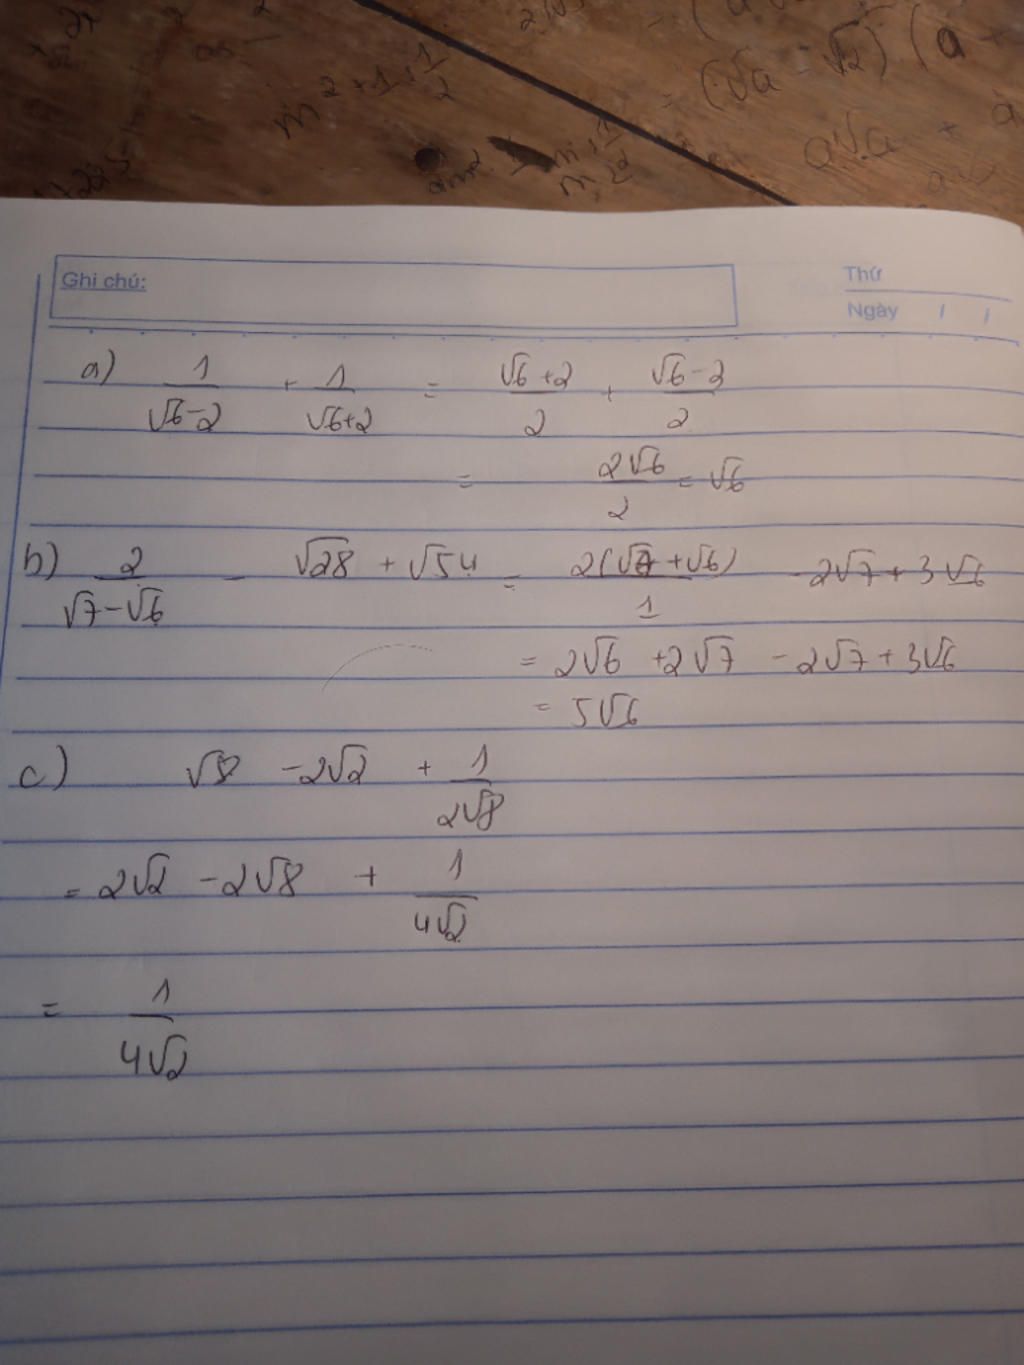 m² + 1 + 1/2
(√a - √2) (a
a√a +
Ghi chú:
Thứ
Ngày / /
a) 1/(√6-2) + 1/(√6+2) = (√6+2)/2 + (√6-2)/2
= 2√6/2 = √6
b) 2/(√7-√6) - √28 + √54 = 2(√7+√6)/1 - 2√7 + 3√6
= 2√6 + 2√7 - 2√7 + 3√6
= 5√6
c) √8 - 2√2 + 1/(2√8)
= 2√2 - 2√8 + 1/(4√2)
= 1/(4√2)